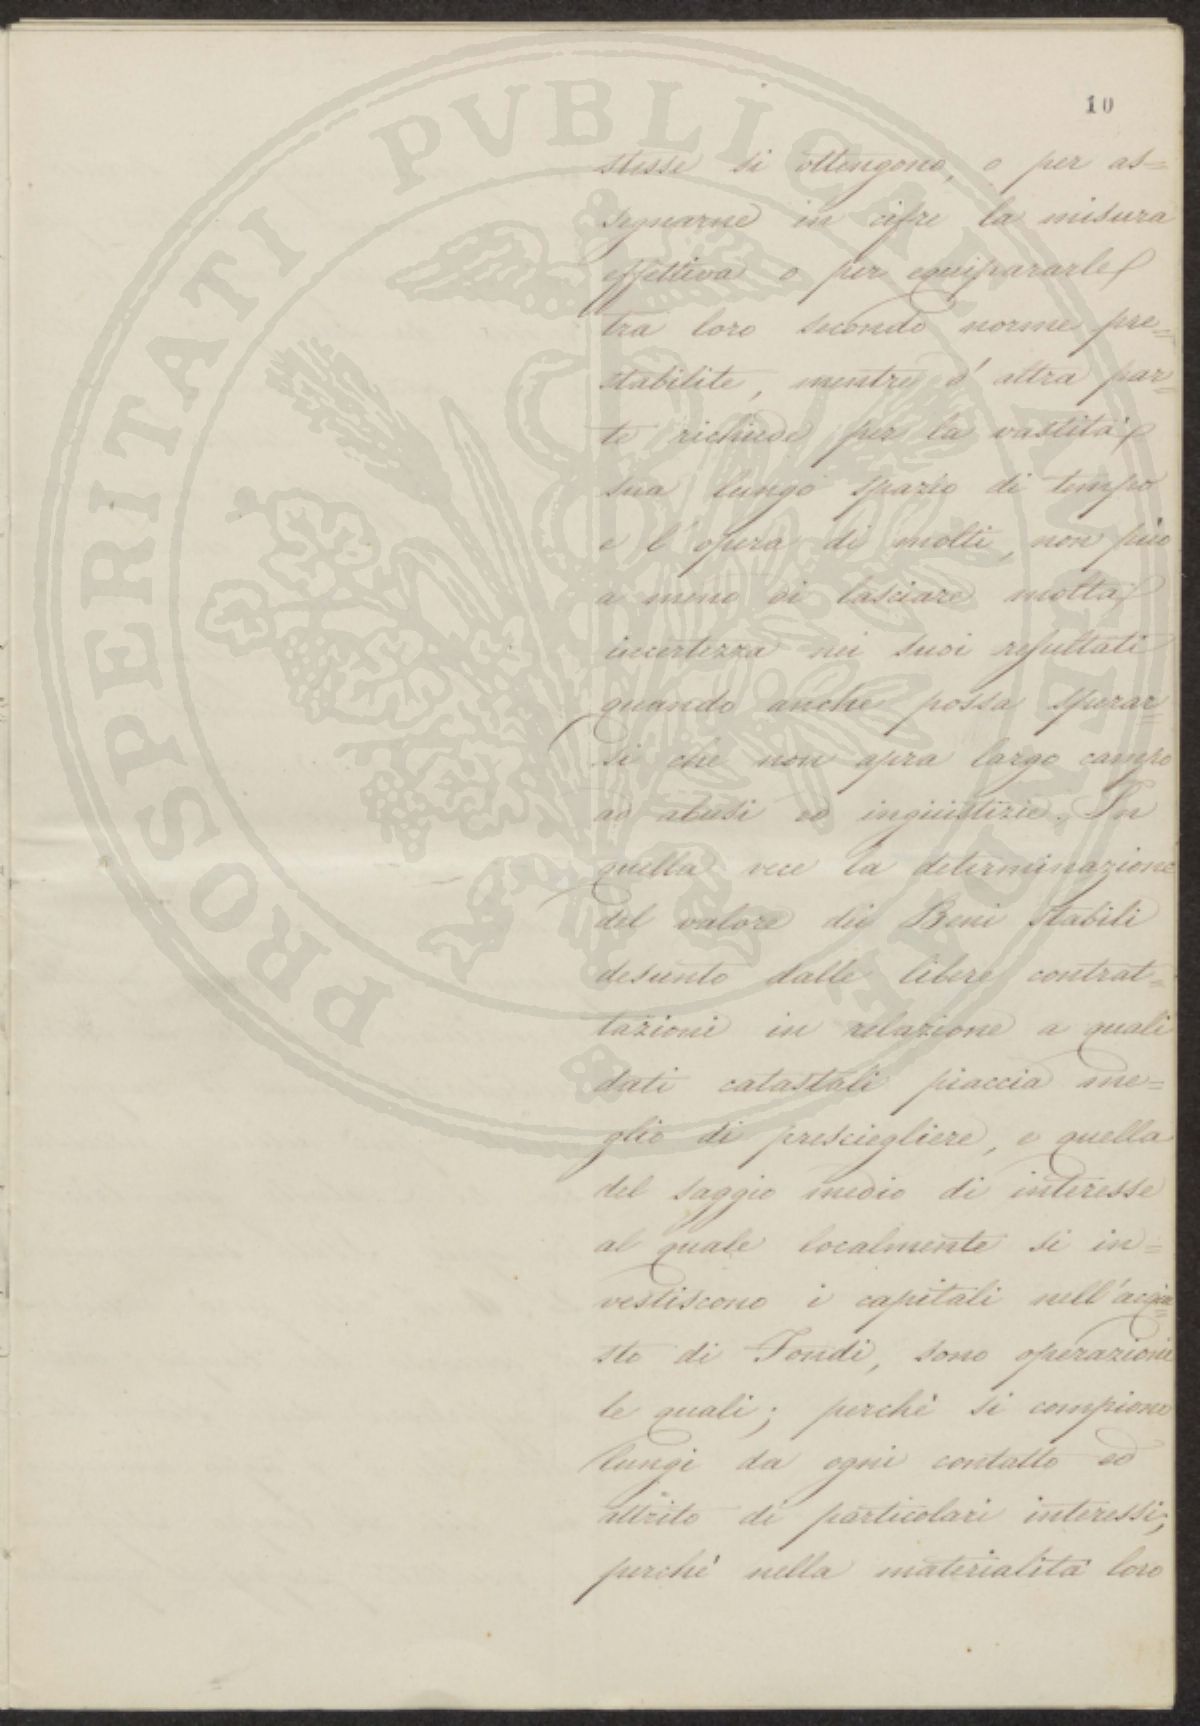 10
stesse si ottengono, o per as=
segnarne in cifre la misura
effettiva o per equipararle
tra loro secondo norme pre=
stabilite, mentre d'altra par=
te richiede per la vastità
sua lungo spazio di tempo
e l'opera di molti, non può
a meno di lasciare molta
incertezza nei suoi resultati
quando anche possa sperar=
si che non apra largo campo
ad abusi ed ingiustizie. In
quella vece la determinazione
del valore dei Beni stabili
desunto dalle libere contrat=
tazioni in relazione a quali
dati catastali piaccia me=
glio di presciegliere, e quella
del saggio medio di interesse
al quale localmente si in=
vestiscono i capitali nell'acqui=
sto di Fondi, sono operazioni
le quali; perchè si compiono
lungi da ogni contatto ed
attrito di particolari interessi;
perchè nella materialità loro
PROSPERITATI PVBLICAE AVGENDAE